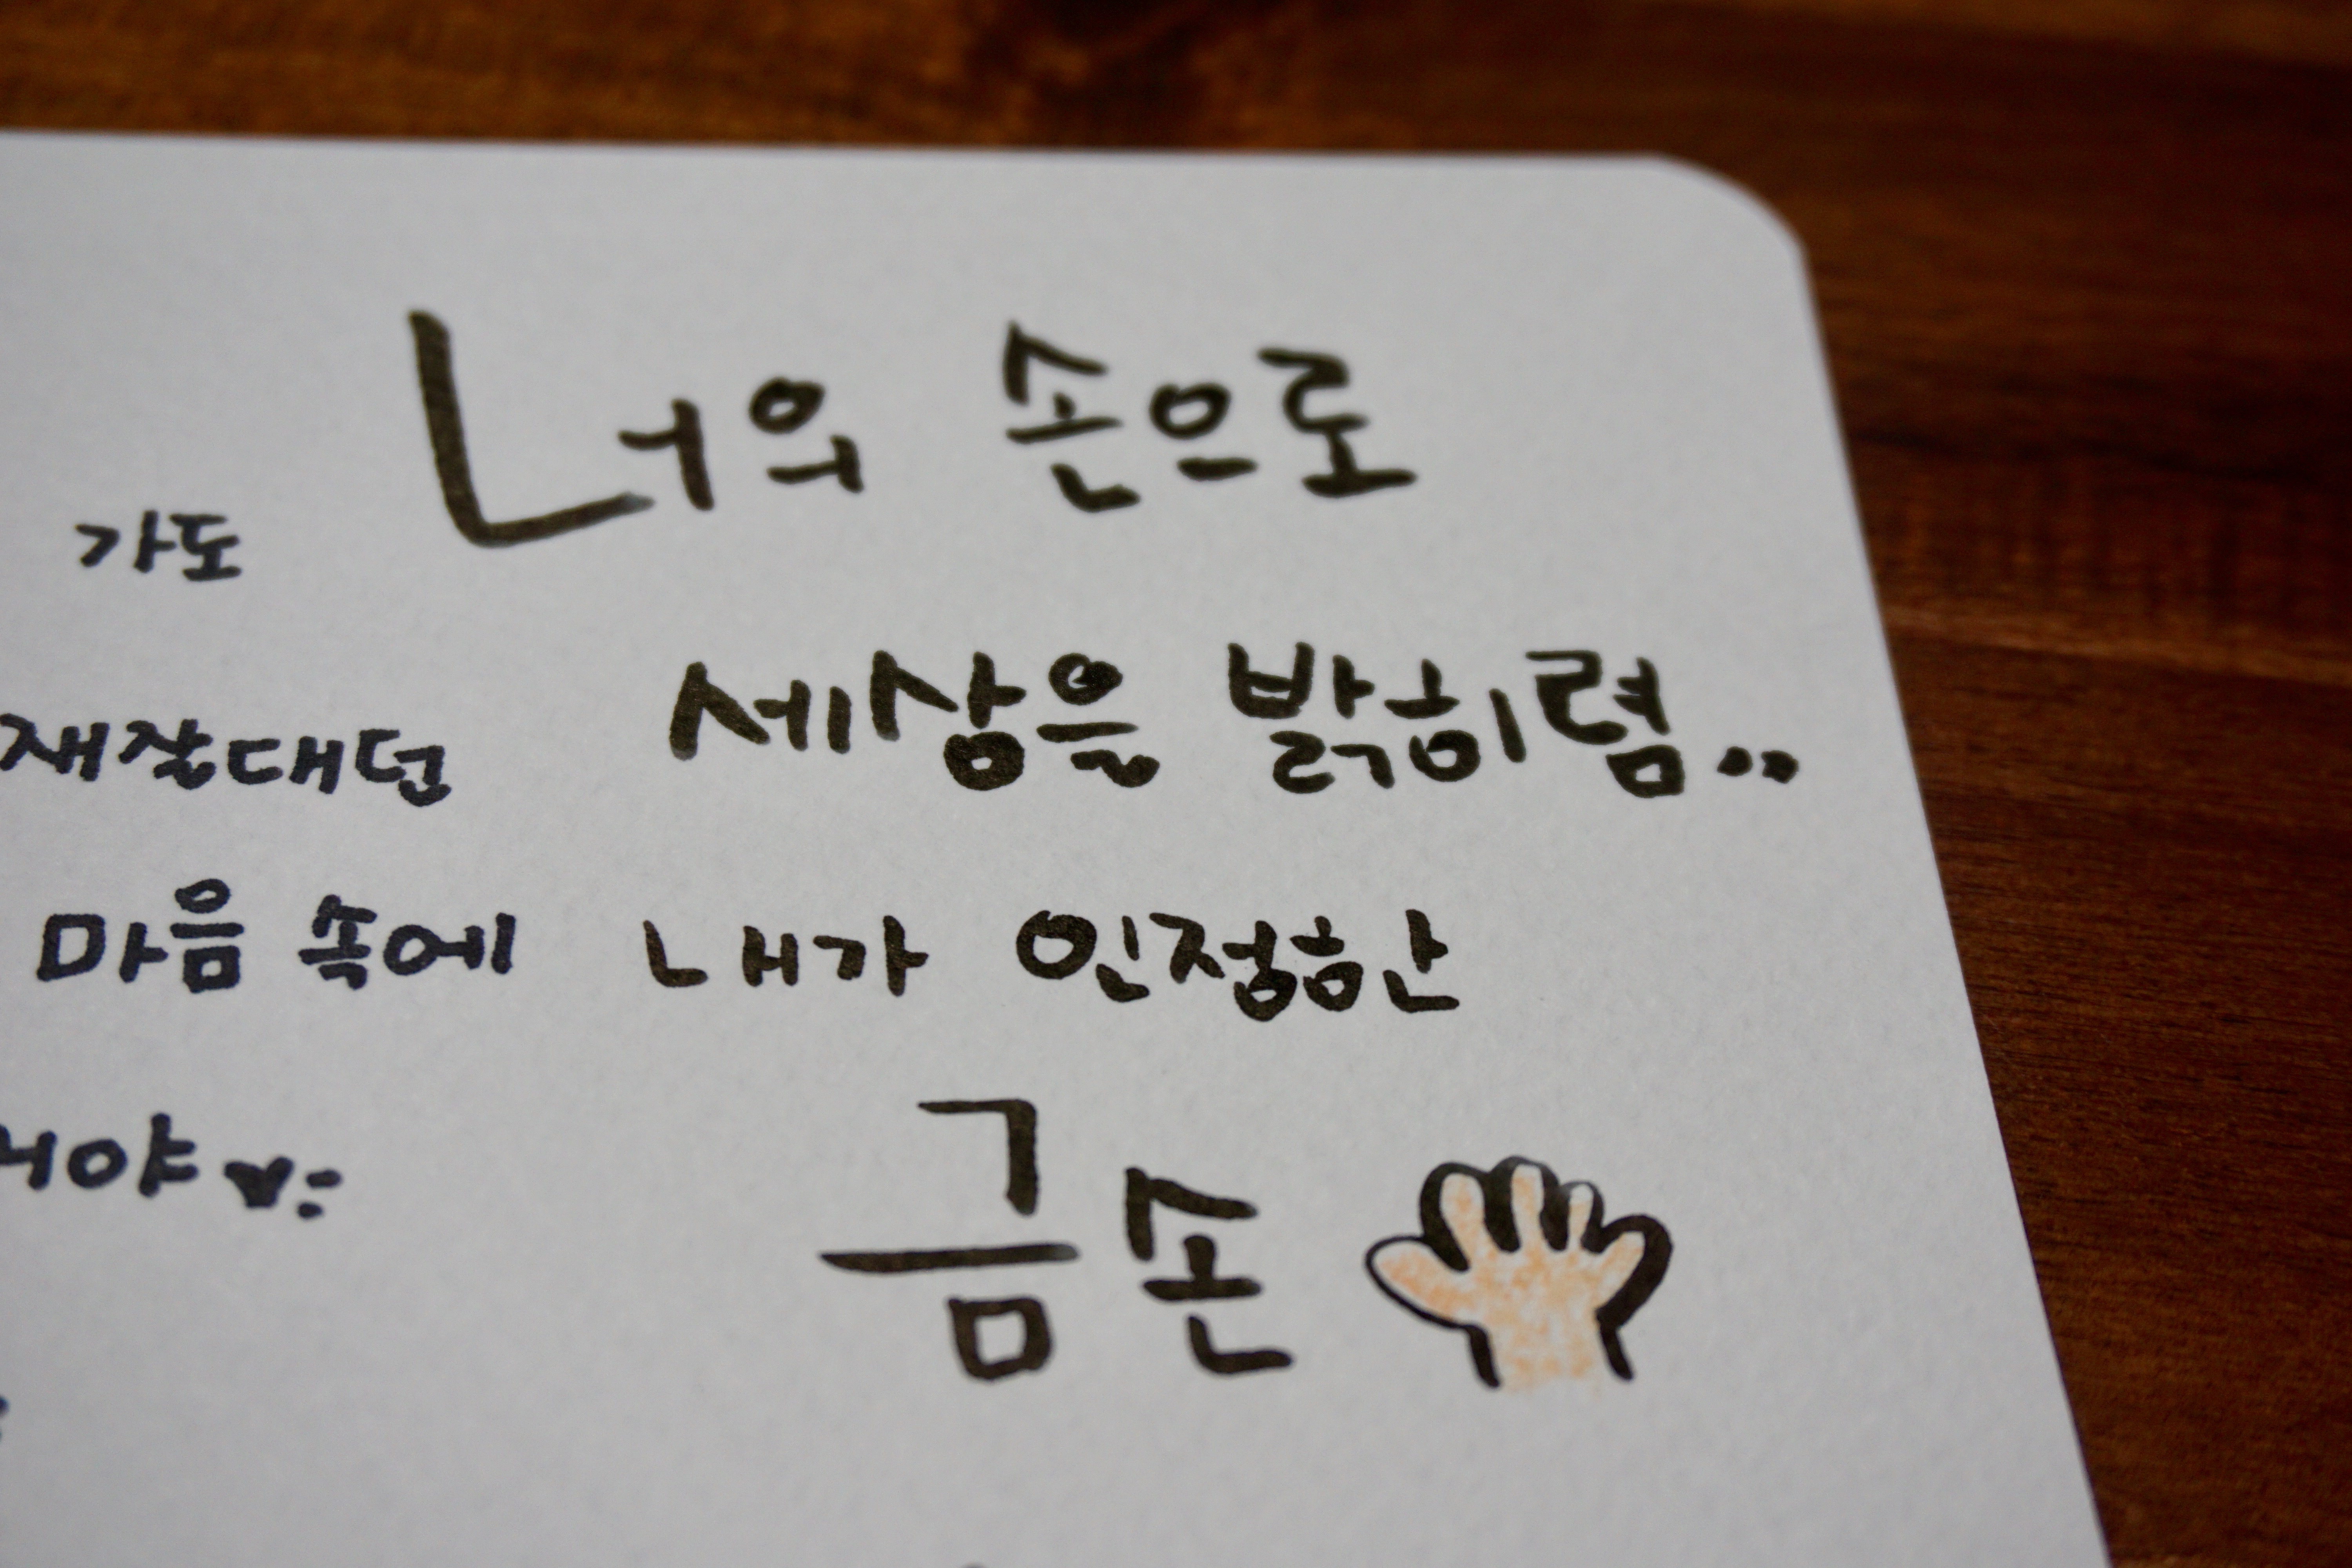 너의 손으로
세상을 밝히렴..
내가 인정한
금손
가도
재잘대던
마음 속에